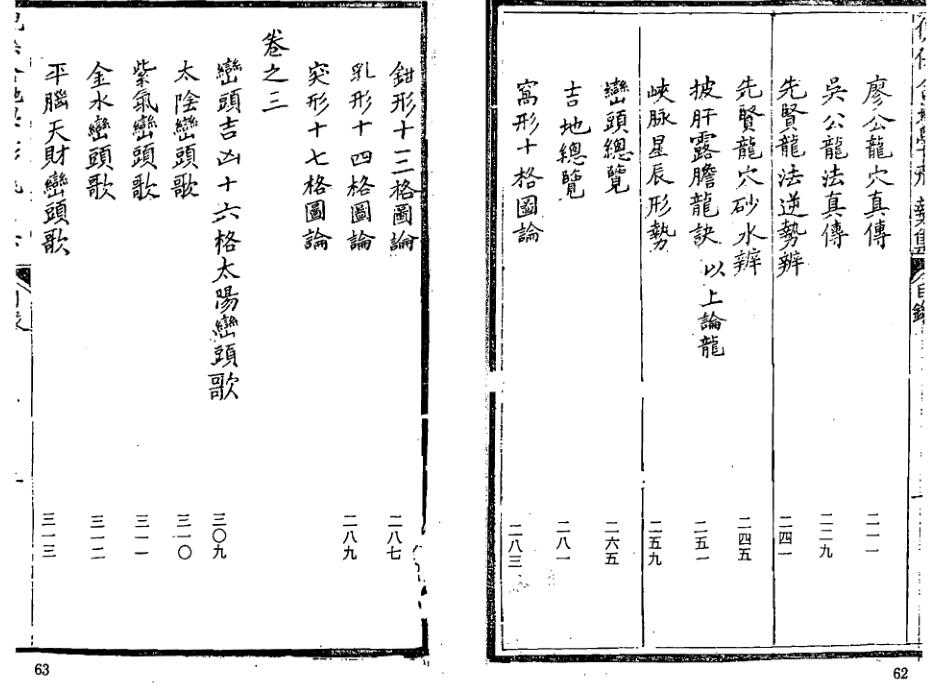 目錄
廖公龍穴真傳 二一一
吳公龍法真傳 二二九
先賢龍法逆勢辨 二四一
先賢龍穴砂水辨 二四五
披肝露膽龍訣 以上論龍 二五一
峽脉星辰形勢 二五九
巒頭總覽 二六五
吉地總覽 二八一
窩形十格圖論 二八三
62
鉗形十二格圖論 二八七
乳形十四格圖論 二八九
突形十七格圖論
卷之三
巒頭吉凶十六格太陽巒頭歌 三〇九
太陰巒頭歌 三一〇
紫氣巒頭歌 三一一
金水巒頭歌 三一二
平腦天財巒頭歌 三一三
63